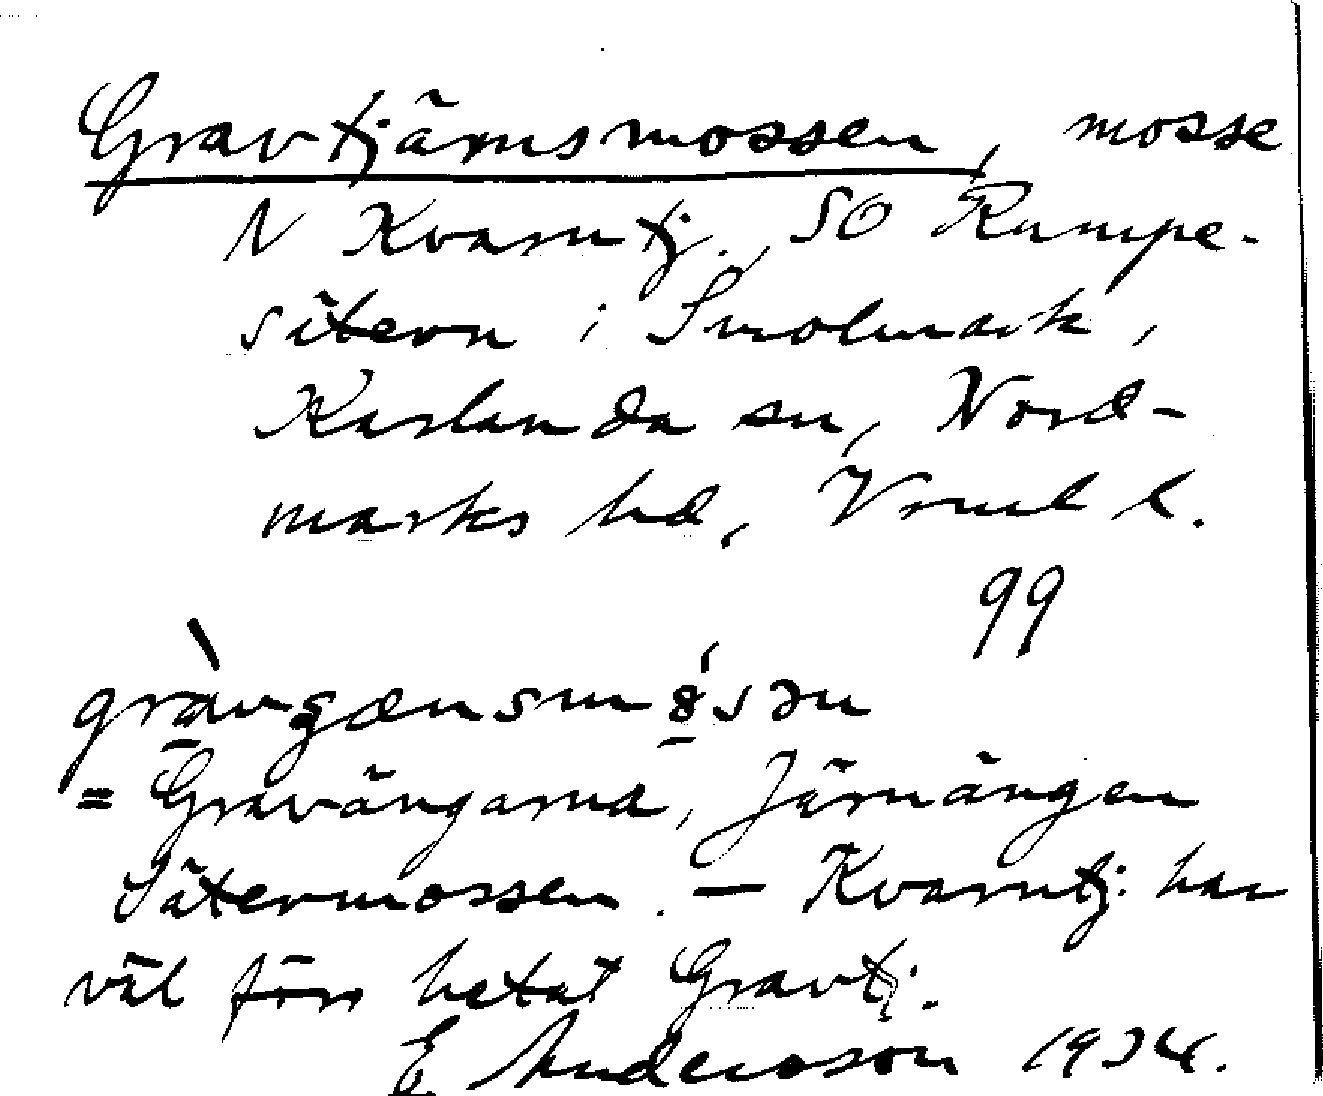 Gravtjärnsmossen, mosse
N Kvarntj., SO Rumpe-
sätern i Smolmark,
Karlanda sn, Nord-
marks hd, Vrml l.
99
= Gravängarna, Järnängen
Sätermossen. — Kvarntj. har
väl förr hetat Gravtj.
E. Andersson 1934.